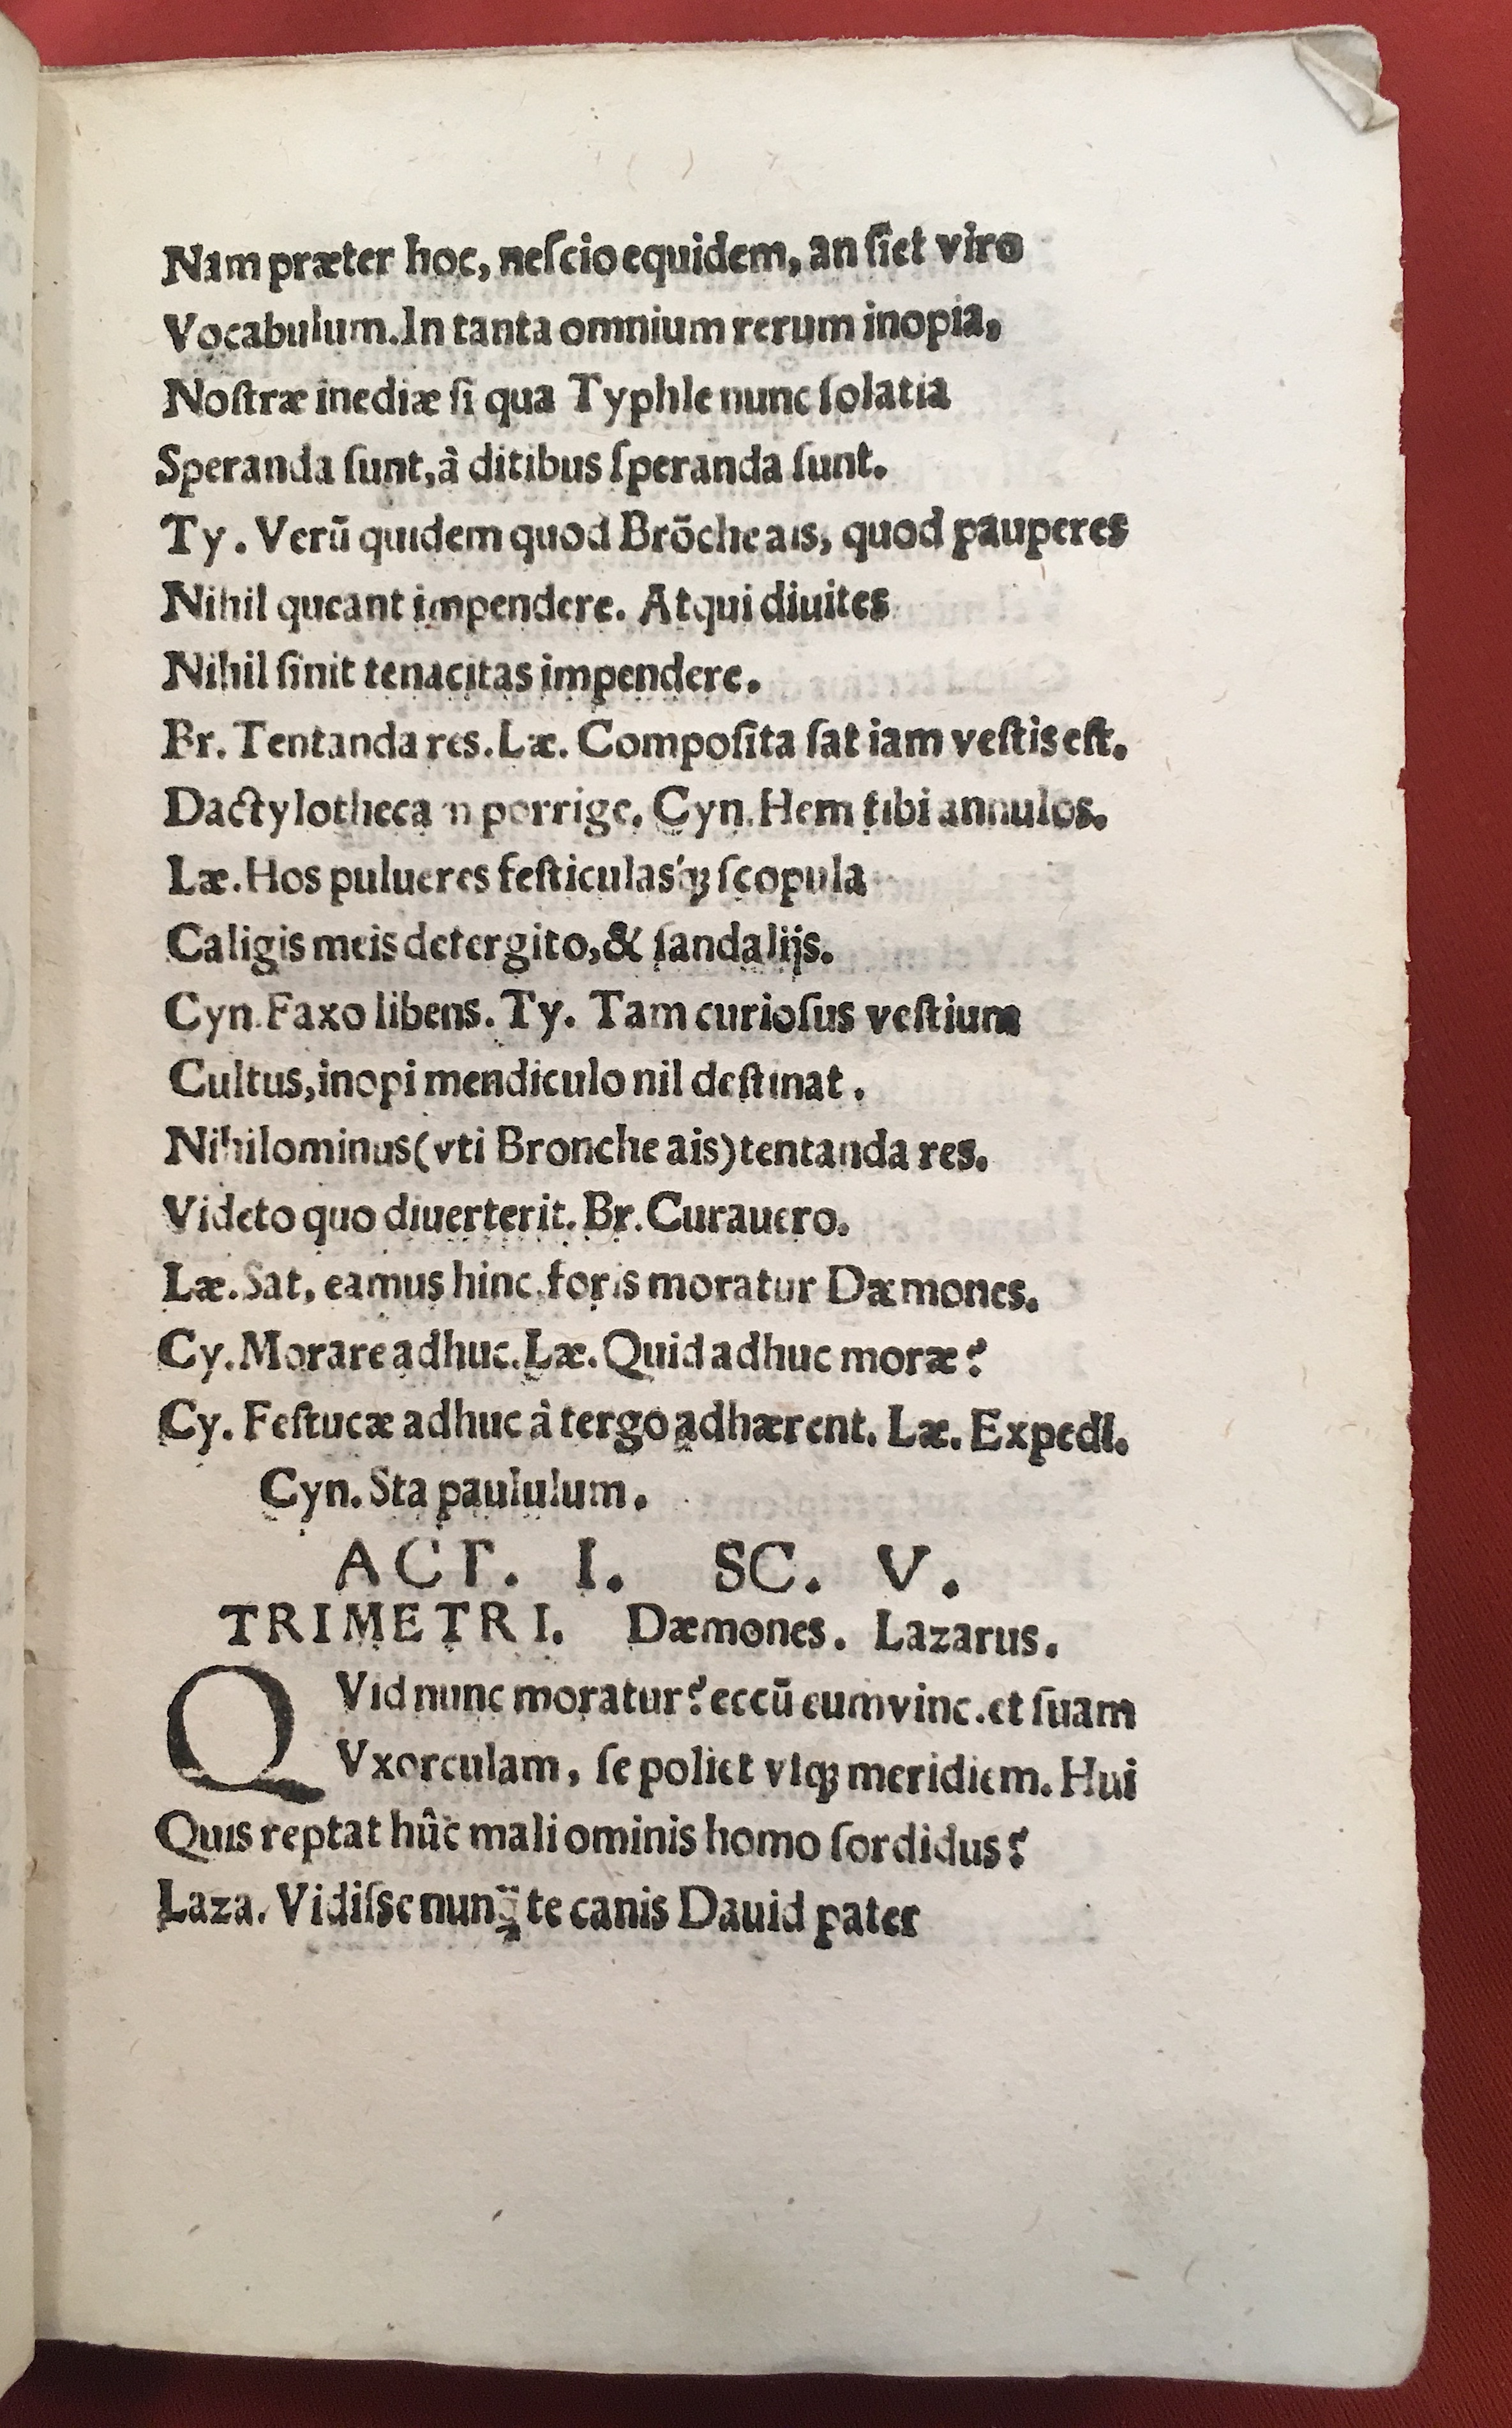 Nam præter hoc, neſcio equidem, an ſiet viro
Vocabulum. In tanta omnium rerum inopia,
Noſtræ inediæ ſi qua Typhle nunc ſolatia
Speranda ſunt, à ditibus ſperanda ſunt.
Ty. Verū quidem quod Brōche ais, quod pauperes
Nihil queant impendere. Atqui diuites
Nihil ſinit tenacitas impendere.
Br. Tentanda res. Læ. Compoſita ſat iam veſtis eſt.
Dactylothecam porrige. Cyn. Hem tibi annulos.
Læ. Hos pulueres feſticulasq́ꝫ ſcopula
Caligis meis detergito, & ſandalijs.
Cyn. Faxo libens. Ty. Tam curioſus veſtium
Cultus, inopi mendiculo nil deſtinat.
Nihilominus (vti Bronche ais) tentanda res.
Videto quo diuerterit. Br. Curauero.
Læ. Sat, eamus hinc. foris moratur Dæmones.
Cy. Morare adhuc. Læ. Quid adhuc moræ?
Cy. Feſtucæ adhuc à tergo adhærent. Læ. ExpedI.
Cyn. Sta paululum.
ACT. I. SC. V.
TRIMETRI. Dæmones. Lazarus.
QVid nunc moratur? eccū eum vinc. et ſuam
Vxorculam, ſe poliet vſqꝫ meridiem. Hui
Quis reptat hûc mali ominis homo ſordidus?
Laza. Vidiſse nunq̃ te canis Dauid pater